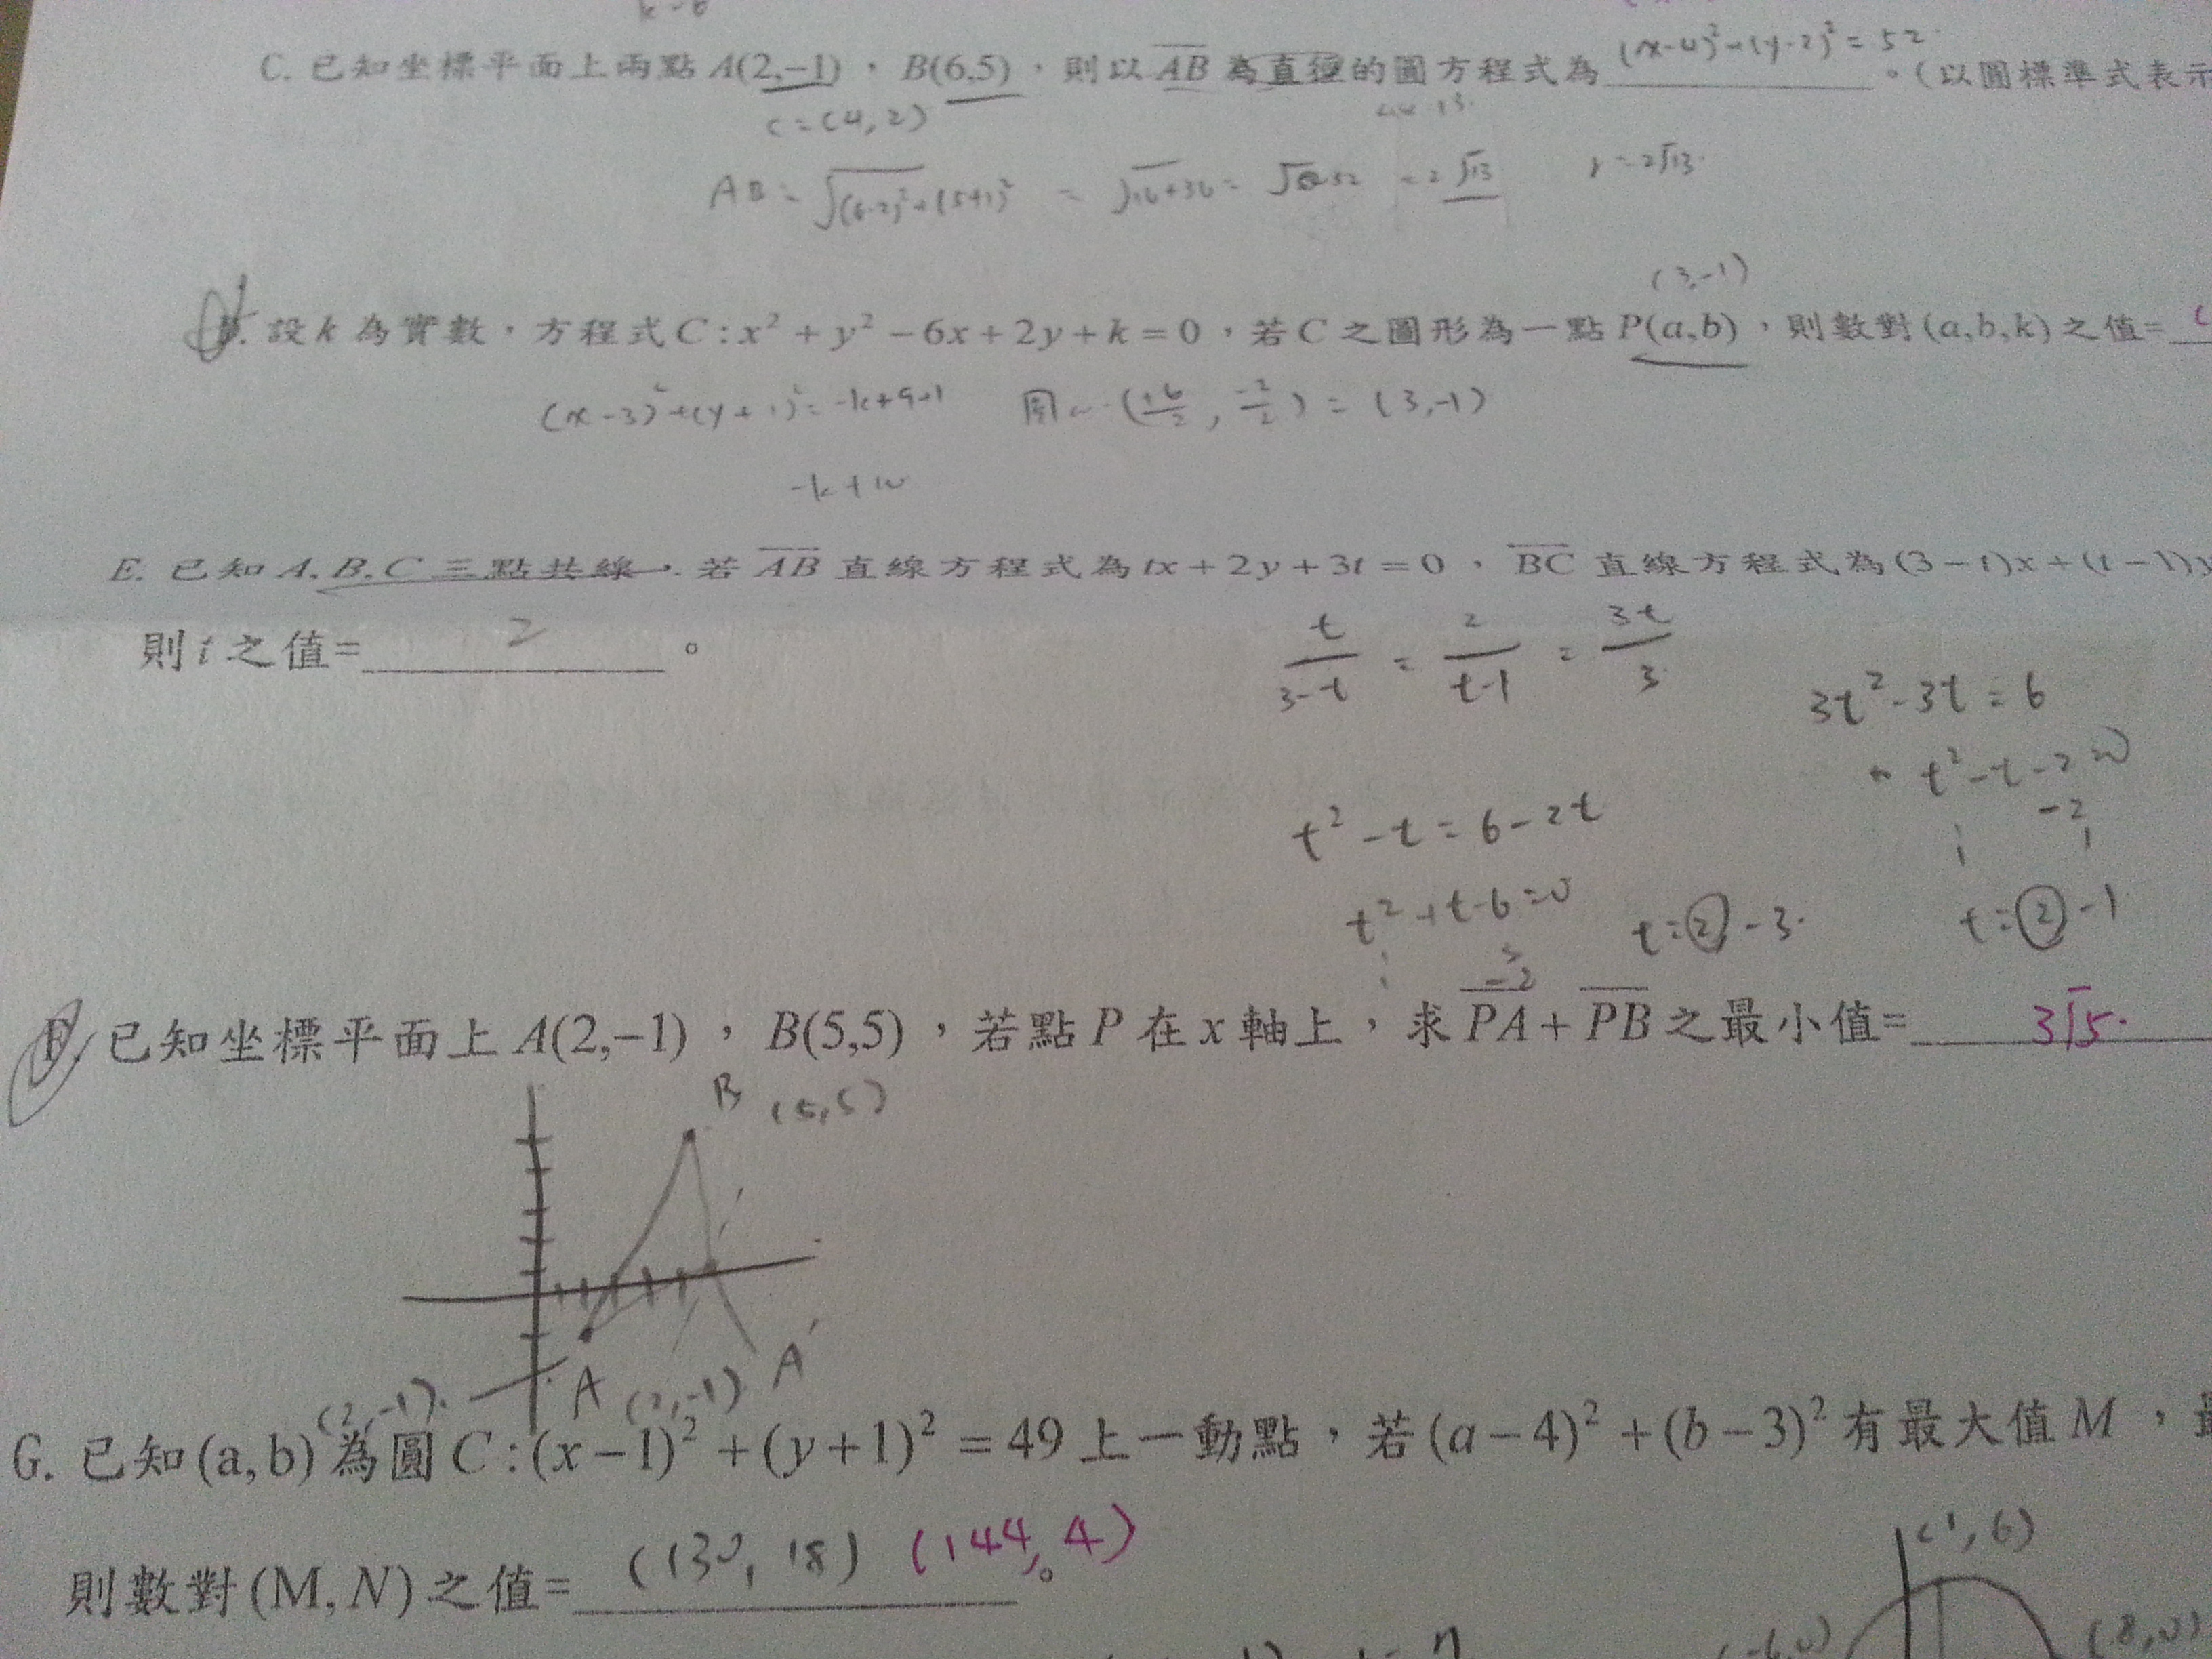 C. 已知坐標平面上兩點 A(2,−1)，B(6,5)，則以 AB 為直徑的圓方程式為 (x-4)²+(y-2)²=52 。(以圓標準式表示
C=(4,2)
AB=√(6-2)²+(5+1)² = √16+36 = √52 = 2√13 r=2√13
(3,-1)
設 k 為實數，方程式 C : x² + y² − 6x + 2y + k = 0，若 C 之圖形為一點 P(a,b)，則數對 (a,b,k) 之值=
(x-3)²+(y+1)²=-k+9+1 圓心(+6/2, -2/2)=(3,-1)
-k+10
E. 已知 A,B,C 三點共線，若 AB 直線方程式為 tx + 2y + 3t = 0，BC 直線方程式為 (3 − t)x + (t − 1)y
則 t 之值= 2 。
t/3-t = 2/t-1 = 3t/3
3t²-3t=6
t²-t-2=0
-2
1 1
t²-t=6-2t
t²+t-6=0
t=2,-3
t=2,-1
3
-2
F. 已知坐標平面上 A(2,−1)，B(5,5)，若點 P 在 x 軸上，求 PA + PB 之最小值= 3√5
B (5,5)
A (2,-1) A'
(2,-1)
G. 已知 (a,b) 為圓 C : (x−1)² + (y+1)² = 49 上一動點，若 (a−4)² + (b−3)² 有最大值 M，最
則數對 (M,N) 之值= (130, 18) (144, 4) 。
(1,6)
(-6,0) (8,0)